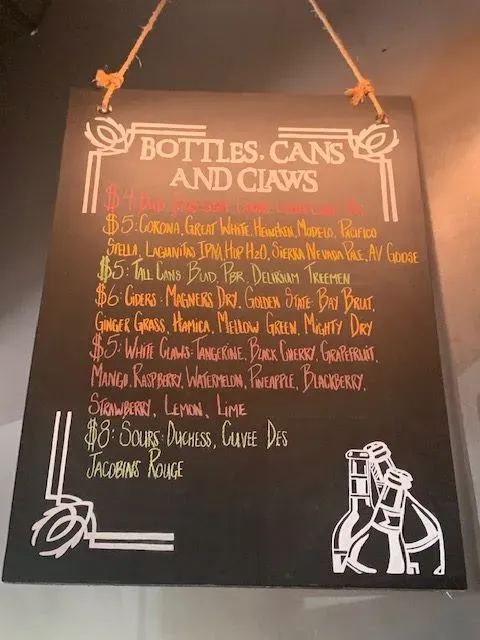 BOTTLES, CANS
AND CLAWS
$4 BUD
$5: CORONA, GREAT WHITE, HEINEKEN, MODELO, PACIFICO
STELLA, LAGUNITAS IPNA, HOP H2O, SIERRA NEVADA PALE, AV GOSE
$5: TALL CANS BUD, PBR DELIRIUM TREEMEN
$6: CIDERS: MAGNERS DRY, GOLDEN STATE: BAY BRUT,
GINGER GRASS, HAMICA, MELLOW GREEN, MIGHTY DRY
$5: WHITE CLAWS: TANGERINE, BLACK CHERRY, GRAPEFRUIT,
MANGO, RASPBERRY, WATERMELON, PINEAPPLE, BLACKBERRY,
STRAWBERRY, LEMON, LIME
$8: SOURS: DUCHESS, CUVEE DES
JACOBINS ROUGE